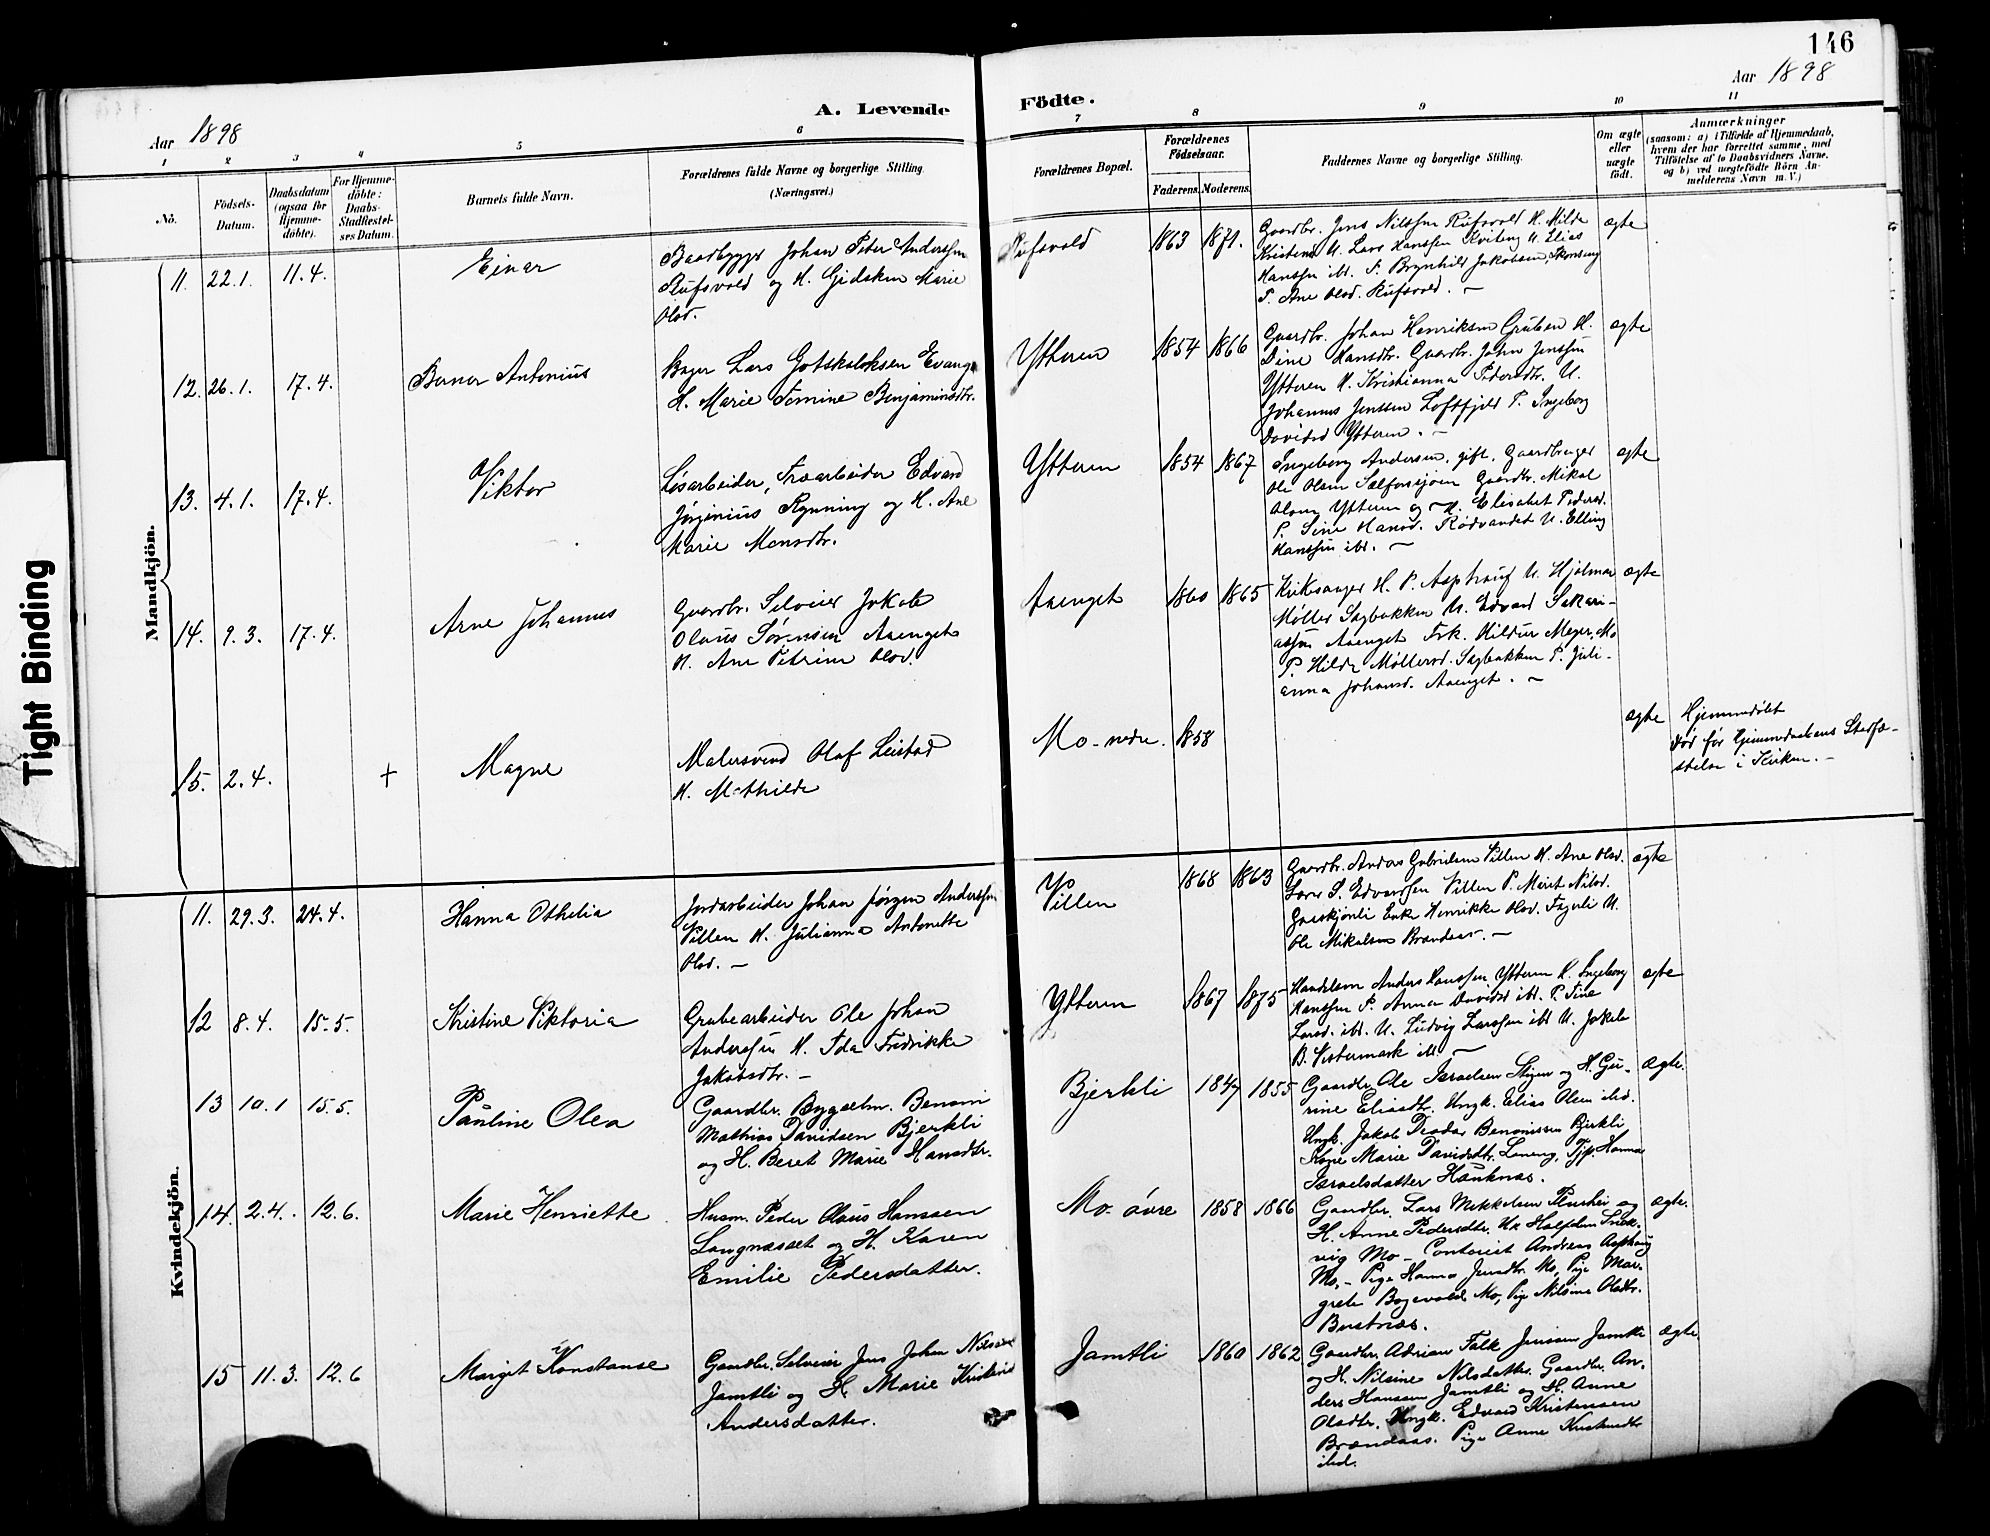 146
Aar 1898
A. Levende
Födte.
Aar 1898
1 2 3 4 5 6
7 8 9 10 11
No.
Födsels-
Datum.
Daabsdatum
(ogsaa for
Hjemme-
döbte).
For Hjemme-
döbte:
Daabs-
Stadfæstel-
ses Datum.
Barnets fulde Navn.
Forældrenes fulde Navne og borgerlige Stilling
(Næringsvei.)
Forældrenes Bopæl.
Forældrenes
Födselsaar.
Faderens. Moderens.
Faddernes Navne og borgerlige Stilling.
Om ægte
eller
uægte
födt.
Anmærkninger
(saasom: a) i Tilfælde af Hjemmedaab,
hvem der har forrettet samme, med
Tilföielse af to Daabsvidners Navne,
og b) ved uægtefödte Börn An-
melderens Navn m. V.)
Tight Binding
Mandkjön.
11. 22.1. 11.4.
Einar
Baadbygger Johan Peter Anderssen
Rufsvold og H. Gidsken Marie
Olsd.
Rufsvold 1863 1871.
Gaardbr. Jens Nilssen Rufsvold H. Milda
Kristensd. U. Lars Hanssen Kviteng U. Elias
Hanssen ibd. P. Brynhild Jakobsen, Skonseng
P. Ane Olsd. Rufsvold. —
ægte
12. 26.1. 17.4.
Berner Antonius
Bager Lars Gotskalksen Evang
H. Marie Femine Benjaminsdtr.
Ytteren 1854 1866
Gaardbr. Johan Henriksen Gruben H.
Dine Hansdtr. Gaardbr. John Jenssen
Ytteren H. Kristianna Pedersdtr. U.
Johannes Jenssen Loftfjeld P. Ingeborg
Davidsd Ytteren. —
ægte
13. 4.1. 17.4.
Viktor
Løsarbeider, Træarbeider Edvard
Jørginius Rynning og H. Ane
Marie Monsdtr.
Ytteren 1854 1867
Ingeborg Andersen, gift. Gaardbruger
Ole Olsen Selforssjøen Gaardbr. Mikal
Olsen Ytteren og H. Elisabet Pedersd.
P. Sine Hansd. Rødvandet U. Elling
Hanssen ibd. —
ægte
14. 9.3. 17.4.
Arne Johannes
Gaardbr. Selveier Jakob
Olaus Sørensen Aaenget
H. Ane Petrine Olsd.
Aaenget 1860 1865
Kirkesanger H. P. Asphaug U. Hjalmar
Møller Sagbakken U. Edvard Sakari-
assen Aaenget Frk. Hildur Meyer, Mo
P. Hilda Møllersd. Sagbakken P. Juli-
anna Johansd. Aaenget. —
ægte
15. 2.4. +
Magne
Malersvend Olaf Leistad
H. Mathilde
Mo-nedre. 1858
ægte
Hjemmedøbt
Død før Hjemmedaabens Stadfæ-
stelse i Kirken. —
Kvindekjön.
11. 29.3. 24.4.
Hanna Othelia
Jordarbeider Johan Jørgen Anderssen
Villen H. Julianna Antonette
Olsd. —
Villen 1868 1863
Gaardbr. Anders Gabrielsen Villen H. Ane Olsd.
Lars S. Edvardsen Villen P. Merit Nilsd.
Enke Henrikke Olsd. U.
Ole Mikalsen Brændaas. —
ægte
12 8.4. 15.5.
Kristine Viktoria
Grubearbeider Ole Johan
Anderssen H. Ida Fredrikke
Jakobsdtr. —
Ytteren 1867 1875
Handelsm Anders Hanssen Ytteren H. Ingeborg
Hanssen P. Anna Davidsd ibd. P. Sine
Larsd. ibd. U. Ludvig Larssen ibd U. Jakob
B. Vestermark ibd. —
ægte
13 10.1 15.5.
Pauline Olea
Gaardbr. Bygselm. Benoni
Mathias Davidsen Bjerkli
og H. Beret Marie Hansdtr.
Bjerkli 1847 1855
Gaardbr. Ole Israelsen Stigen og H. Gu-
rine Eliasdtr. Ungk. Elias Olsen ibd.
Ungk. Jakob Peder Benonissen Bjerkli
Kone Marie Davidsdtr. Laneng, Pige Hanna
Israelsdatter Hauknæs.
ægte.
14. 2.4. 12.6.
Marie Henriette
Husm. Peder Olaus Hanssen
Langnæsset og H. Karen
Emilie Pedersdatter.
Mo-övre 1858 1866
Gaardbr. Lars Mikkelsen Plurhei og
H. Anne Pedersdtr. Uk Halfdan Snek-
vig Mo — Contorist Andreas Asphaug
Mo, — Pige Hanna Jensdtr. Mo, Pige Mar-
grete Bogevold Mo, Pige Nilsine Olsdtr.
Bustnæs.
ægte.
15 11.3. 12.6
Margit Konstanse
Gaardbr. Selveier Jens Johan Nilssen
Jamtli og H. Marie Kristine
Andersdatter.
Jamtli 1860 1862
Gaardbr. Adrian Falk Jenssen Jamtli
og H. Nilsine Nilsdatter. Gaardbr. An-
ders Hanssen Jamtli og H. Anne
Olsdtr. Ungk. Edvard Kristensen
Brændaas. Pige Anne Kristensdtr
ibd.
ægte